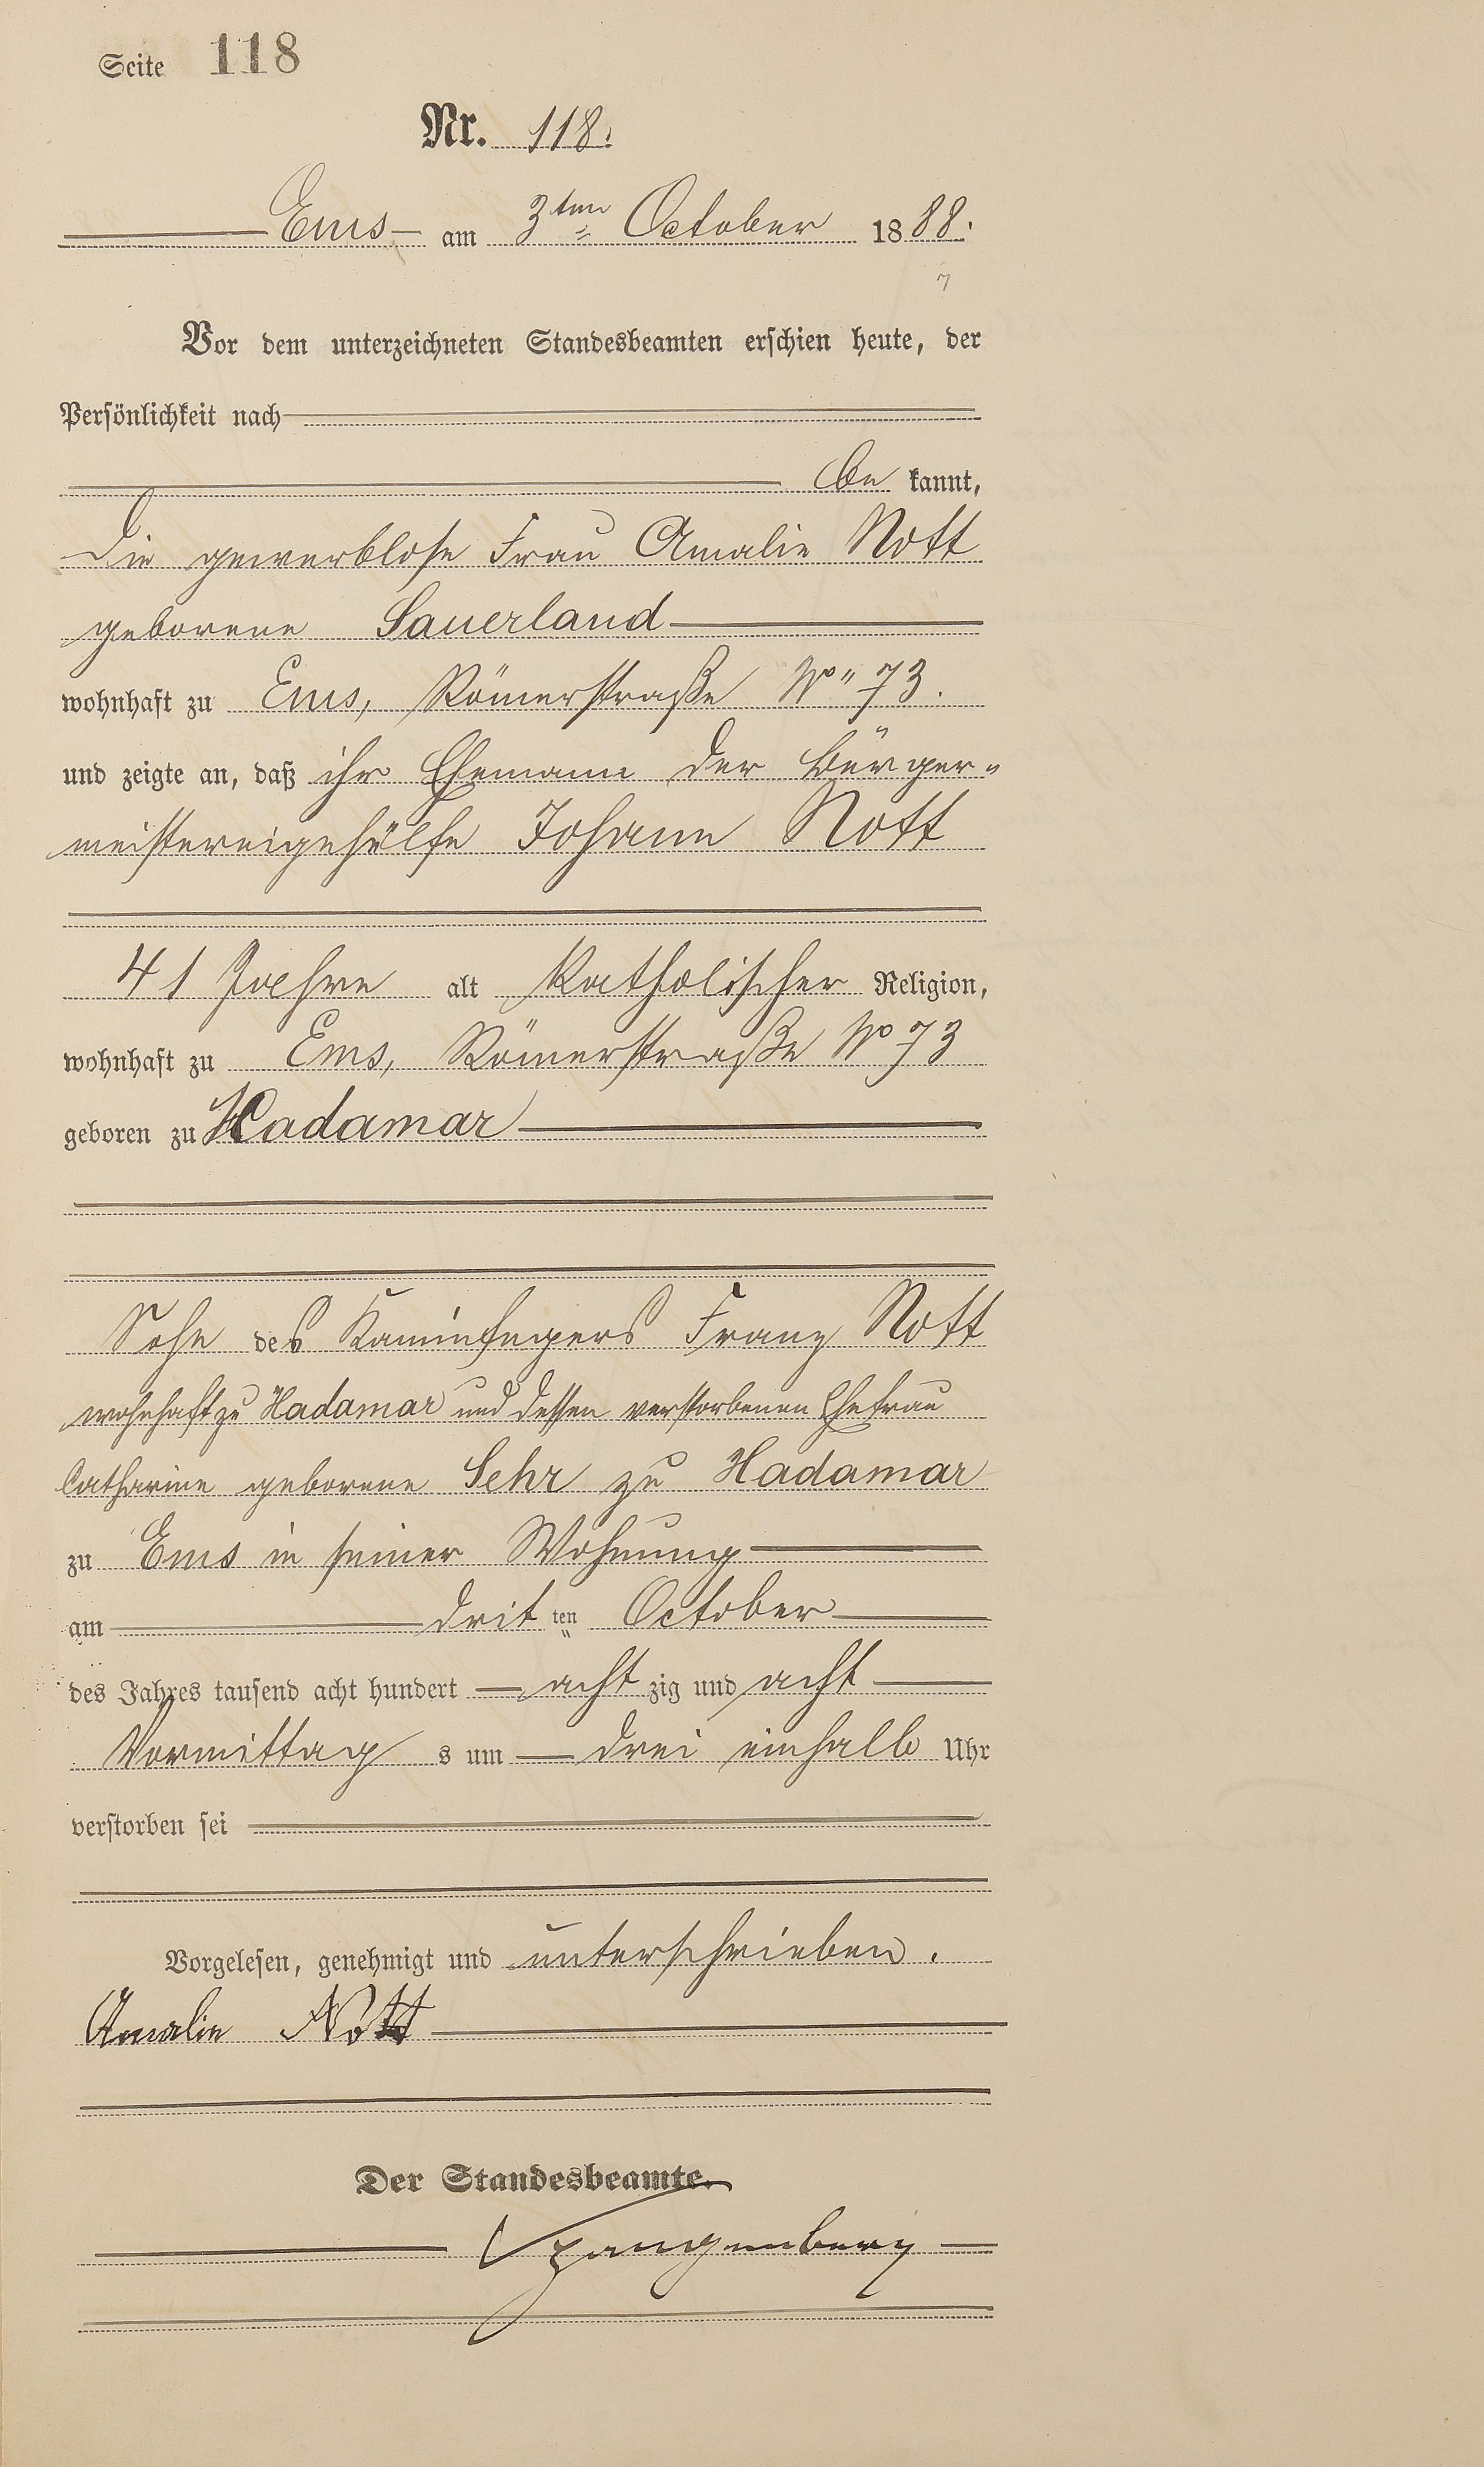 Seite 118
Nr. 118.
Ems am 3ten October 1888.
Vor dem unterzeichneten Standesbeamten erschien heute, der
Persönlichkeit nach
be kannt,
die gewerblose Frau Amalie Nott
geborene Sauerland
wohnhaft zu Ems, Römerstraße No 73.
und zeigte an, daß ihr Ehemann der Bürger-
meistereigehülfe Johann Nott
41 Jahre alt katholischer Religion,
wohnhaft zu Ems, Römerstraße No 73
geboren zu Hadamar
Sohn des Kaminfegers Franz Nott
wohnhaft zu Hadamar und dessen verstorbenen Ehefrau
Catharine geborene Sehr zu Hadamar
zu Ems in seiner Wohnung
am drit ten October
des Jahres tausend acht hundert acht zig und acht
Vormittag s um drei einhalb Uhr
verstorben sei
Vorgelesen, genehmigt und unterschrieben.
Amalie Nott
Der Standesbeamte.
Spangenberg